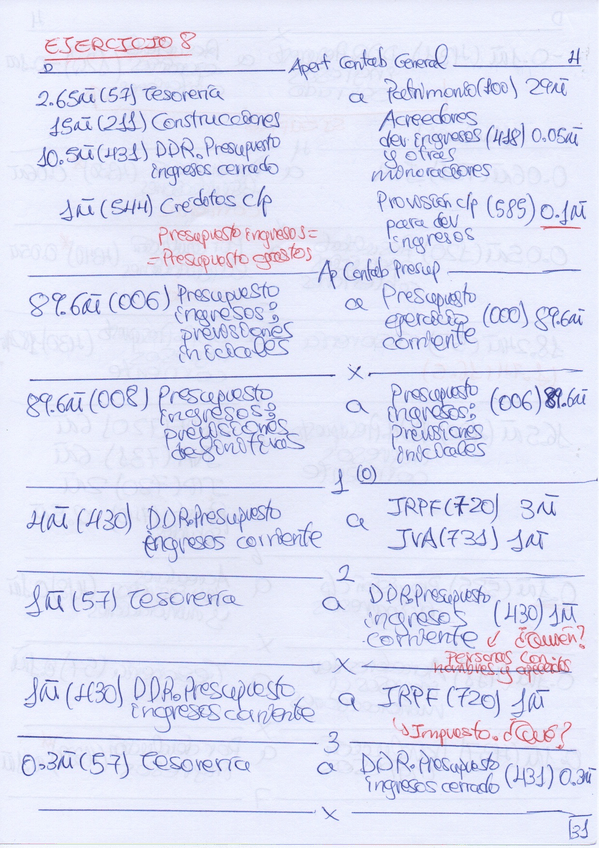 EJERCICIO 8
D Apert Contab General H
2.65m̄ (57) Tesorería a Patrimonio (100) 29m̄
15m̄ (211) Construcciones Acreedores
10.5m̄ (431) DDR. Presupuesto dev ingresos (418) 0.05m̄
ingresos cerrado y otras
minoraciones
1m̄ (544) Créditos c/p Provisión c/p
para dev (585) 0.1m̄
ingresos
Presupuesto ingresos =
= Presupuesto gastos
Ap Contab Presup.
89.6m̄ (006) Presupuesto a Presupuesto
ingresos: ejercicio (000) 89.6m̄
previsiones corriente
iniciales
x
89.6m̄ (008) Presupuesto a Presupuesto
ingresos: ingresos: (006) 89.6m̄
previsiones previsiones
definitivas iniciales
1 (0)
4m̄ (430) DDR. Presupuesto a IRPF (720) 3m̄
ingresos corriente IVA (731) 1m̄
2
1m̄ (57) Tesorería a DDR. Presupuesto
ingresos (430) 1m̄
corriente ↙ ¿Quién?
Personas con
nombres y apellidos
x
1m̄ (430) DDR. Presupuesto a IRPF (720) 1m̄
ingresos corriente
↳ Impuesto. ¿Qué?
3
0.3m̄ (57) Tesorería a DDR. Presupuesto
ingresos cerrado (431) 0.3m̄
x
31